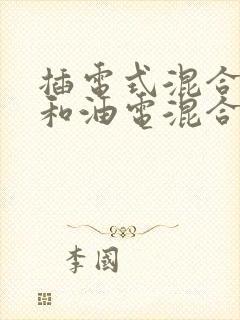 插電式混合
和油電混合
李國